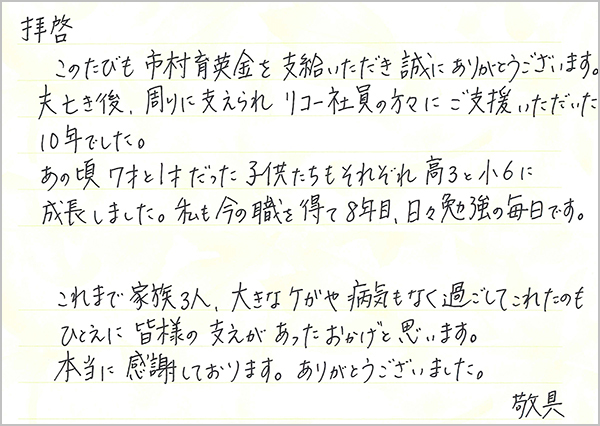 拝啓
このたびも 市村育英金を支給いただき 誠にありがとうございます。
夫亡き後、周りに支えられ リコー社員の方々に ご支援いただいた
10年でした。
あの頃 7才と1才だった 子供たちもそれぞれ 高3と小6に
成長しました。私も今の職を得て8年目、日々勉強の毎日です。
これまで家族3人、大きなケガや病気もなく過ごしてこれたのも
ひとえに皆様の支えがあったおかげと思います。
本当に感謝しております。ありがとうございました。
敬具